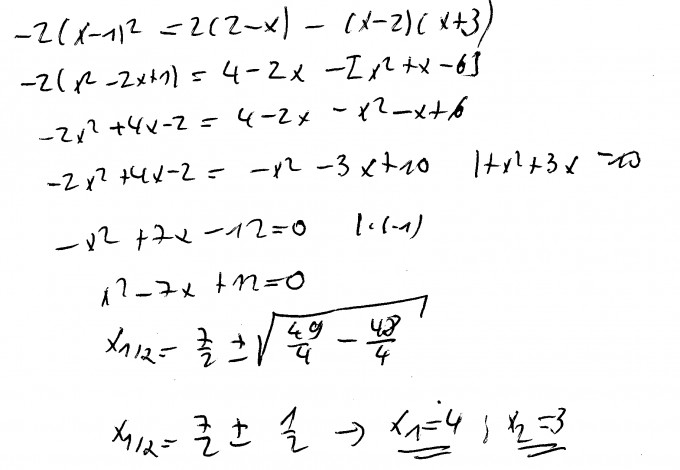 -2(x-1)² = 2(2-x) - (x-2)(x+3)
-2(x²-2x+1) = 4-2x -[x²+x-6]
-2x²+4x-2 = 4-2x -x²-x+6
-2x²+4x-2 = -x²-3x+10 |+x²+3x -10
-x²+7x-12=0 |·(-1)
x²-7x+12=0
x₁/₂= 7/2 ± √(49/4 - 48/4)
x₁/₂= 7/2 ± 1/2 → x₁=4 ; x₂=3